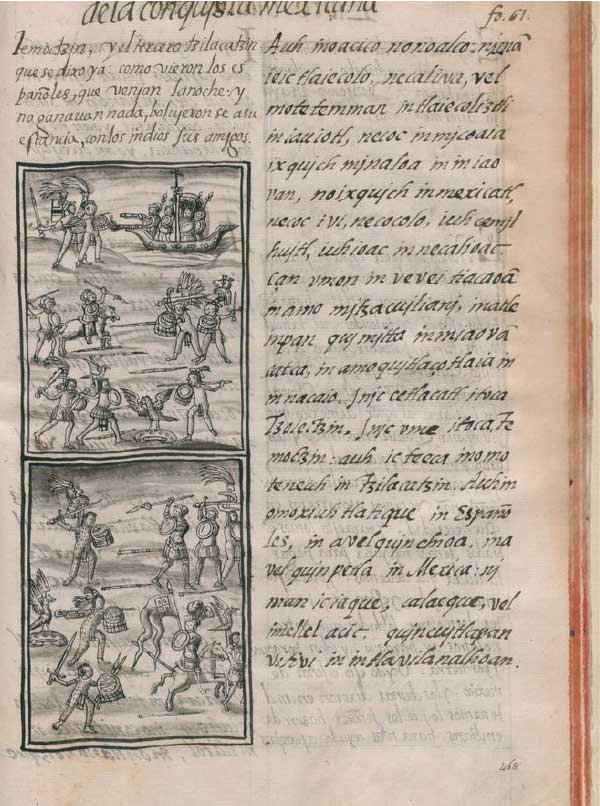 de la conquista mexicana
fo. 61.
Temoctzin, y el tercero tzilacatzin
que se dixo ya: como vieron los es
pañoles, que venjan la noche: y
no ganauan nada, boluieron se a su
estancia, con los indios sus amigos.
Auh in oacico nonoalco: njmā
ie ic tlaiecolo, necaliva, vel
motetemman in tlaiecoliztli
in iauiotl, necoc in mjcoaia
ixqujch mjnaloa in iniao
van, no ixqujch in mexicatl,
necoc ivi, necocolo, iuh cemjl
hujtl, iuh ioac in necalioac.
Çan vmon in vevei tiacaoā
in amo mjtzacujlianj, in atle
ypan qujmitta in iniaovā
catca, in amo qujtlaçotlaia in
innacaio. Jnjc ce tlacatl itoca
Tzoiectzin. Jnjc vme itoca, Te
moctzin: auh ic teeca in omo
teneuh in Tzilacatzin. Auh in
omoxiuhtlatique in Españo
les, in avel quinchioa, in a
vel quinpetla in Mexica: nj
man ic iaque, calacque, vel
inellel acic, qujncujtlapan
vitivi in intlavilanalhoan.
468